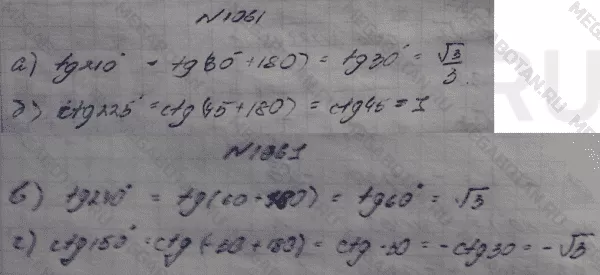 N1061
а) tg210° = tg(30°+180) = tg30° = √3/3
б) ctg225° = ctg(45+180) = ctg45 = 1
N1061
в) tg240° = tg(60+180) = tg60° = √3
г) ctg150° = ctg(-30+180) = ctg-30 = -ctg30 = -√3
MEGABOTAN.RU
RU